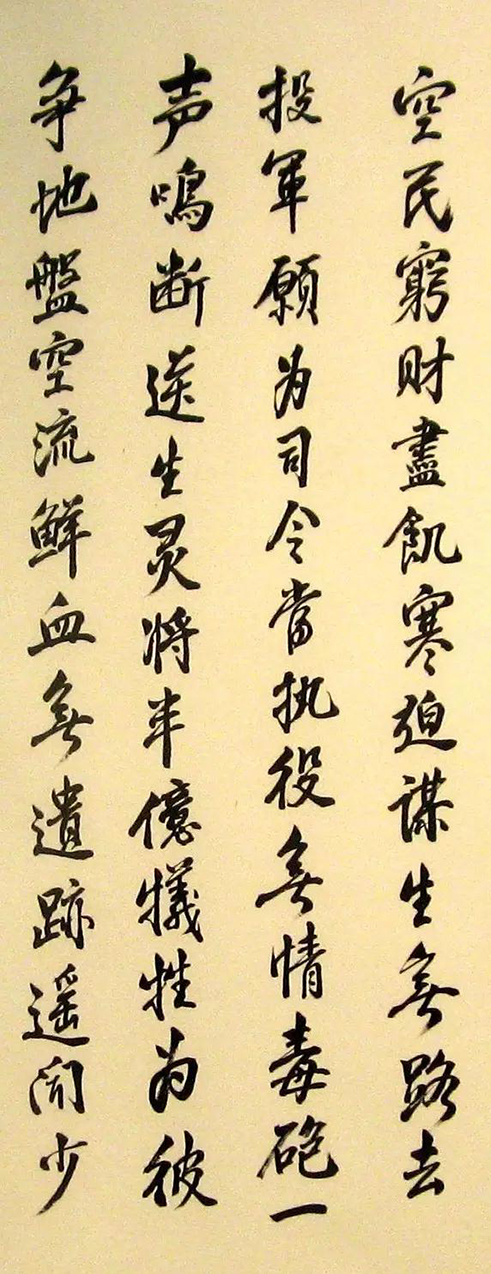 空民窮財盡飢寒迫謀生無路去
投軍願为司令當执役無情毒砲一
声鳴断送生灵将半億犧牲为彼
争地盤空流鮮血無遺跡遥闻少